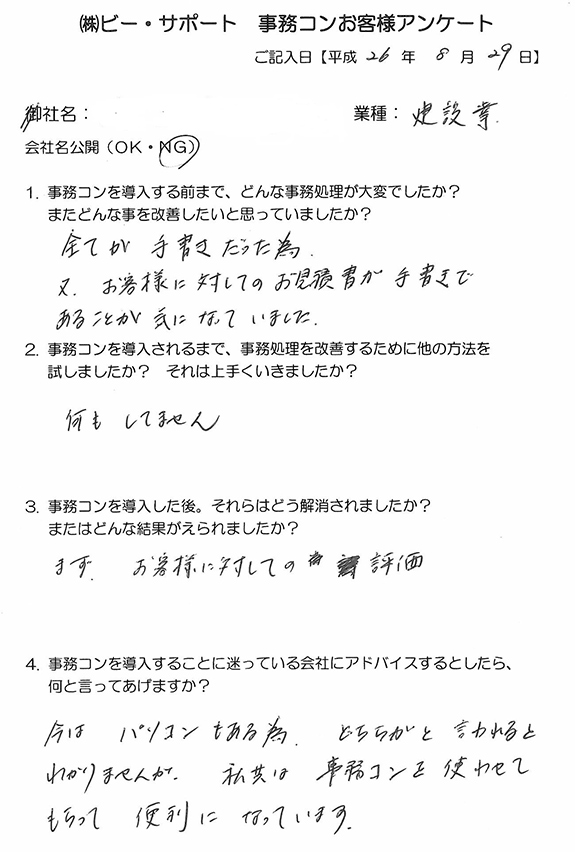 ㈱ビー・サポート 事務コンお客様アンケート
ご記入日【平成 26 年 8 月 29 日】
御社名：
業種： 建設業.
会社名公開（OK・NG）
1. 事務コンを導入する前まで、どんな事務処理が大変でしたか？
またどんな事を改善したいと思っていましたか？
全てが 手書きだった為.
又. お客様に対してのお見積書が 手書きで
あることが 気になっていました.
2. 事務コンを導入されるまで、事務処理を改善するために他の方法を
試しましたか？ それは上手くいきましたか？
何も してません
3. 事務コンを導入した後。それらはどう解消されましたか？
またはどんな結果がえられましたか？
まず. お客様に対しての 評価
4. 事務コンを導入することに迷っている会社にアドバイスするとしたら、
何と言ってあげますか？
今は パソコンもある為. どちらがと 言われると
わかりませんが. 私共は 事務コンを 使わせて
もらって 便利に なっています.